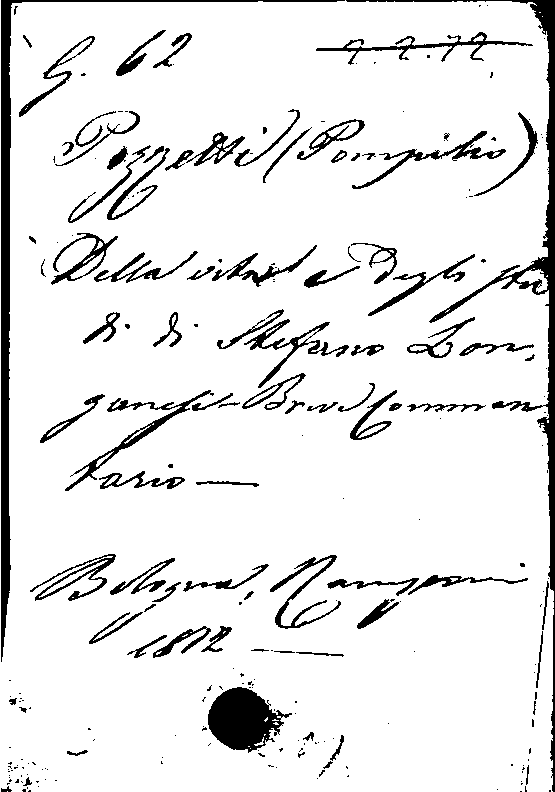 G. 62 7.2.72
Pozzetti (Pompilio)
Della vita e degli stu
di di Stefano Lon,
ganesi - Breve Commen
tario —
Bologna, Ramponi
1812 —